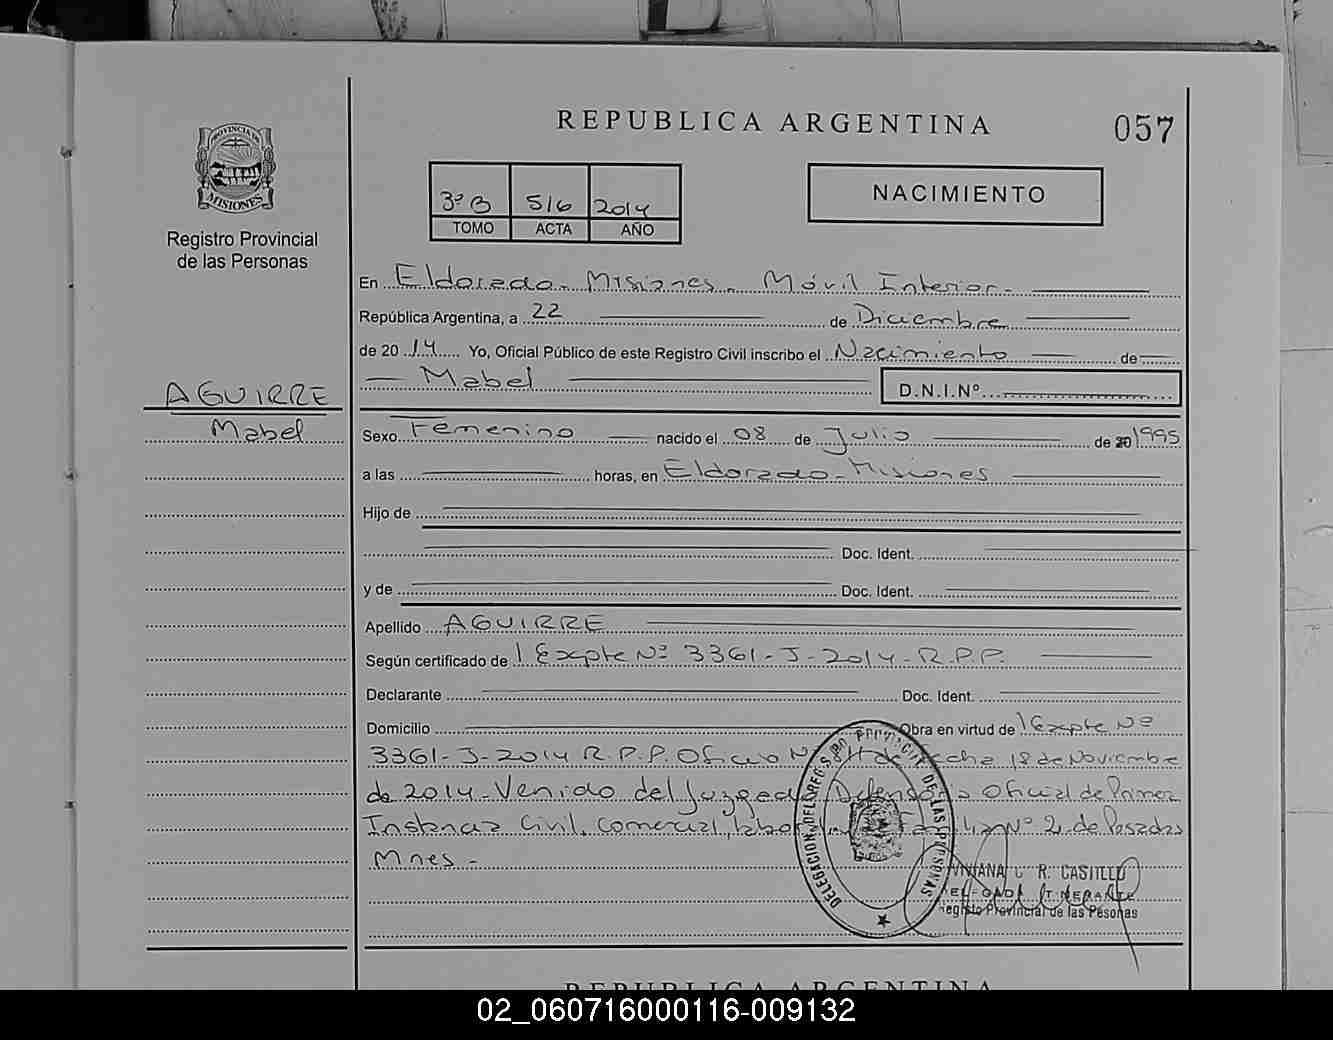 REPUBLICA ARGENTINA
057
PROVINCIA DE
MISIONES
Registro Provincial
de las Personas
3º B 516 2014
TOMO ACTA AÑO
NACIMIENTO
En Eldorado - Misiones - Móvil Interior -
República Argentina, a 22 de Diciembre
de 2014 Yo, Oficial Público de este Registro Civil inscribo el Nacimiento de
Mabel D.N.I.Nº
AGUIRRE
Mabel
Sexo Femenino nacido el 08 de Julio de 20 1995
a las horas, en Eldorado - Misiones
Hijo de
Doc. Ident.
y de Doc. Ident.
Apellido AGUIRRE
Según certificado de Expte Nº 3361-J-2014-R.P.P.
Declarante Doc. Ident.
Domicilio Obra en virtud de Expte Nº
3361-J-2014 R.P.P. Oficio de fecha 18 de Noviembre
de 2014 - Venido del Juzgado Defensoría Oficial de Primera
Instancia Civil, Comercial, Nº 2 de Posadas
Mnes -
DELEGACION DEL REGISTRO PROVINCIAL DE LAS PERSONAS
VIVIANA R. CASTILLO
DELEGADA ITINERANTE
Registro Provincial de las Pesonas
REPUBLICA ARGENTINA
02_060716000116-009132